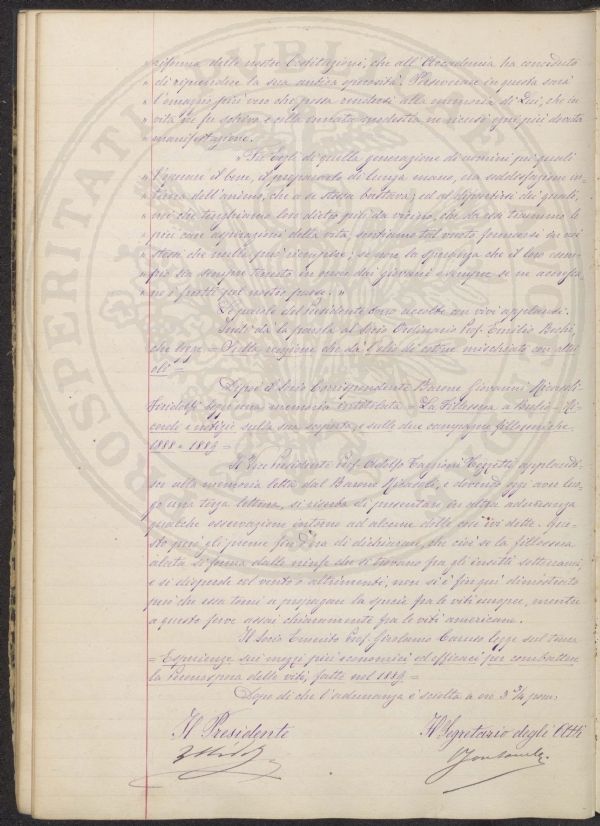 " riforma delle nostre Costituzioni, che all'Accademia ha consentito
" di riprendere la sua antica operosità. Perseverare in questa sarà
" l'omaggio più vero che possa rendersi alla memoria di Lui, che in
" vita ne fu schivo e nella innata modestia ne ricusò ogni più dovuta
" manifestazione.
" Fu Egli di quella generazione di uomini pei quali
" l'operare il bene, il prepararlo di lunga mano, era soddisfazione in-
" terna dell'animo, che a se stessa bastava; ed al dipartirsi dei quali,
" noi che tenghiamo loro dietro più da vicino, che da essi traemmo le
" più care aspirazioni della vita, sentiamo tal vuoto formarsi in noi
" stessi che nulla può riempire, se non la speranza che il loro esem-
" pio sia sempre tenuto in onore dai giovani e sempre se ne accolga-
" no i frutti pel nostro paese. "
Le parole del Presidente sono accolte con vivi applausi.
Indi dà la parola al Socio Ordinario Prof. Emilio Bechi,
che legge = Della reazione che dà l'olio di cotone mischiato con altri
oli =
Dopo il Socio Corrispondente Barone Giovanni Ricasoli
Firidolfi legge una memoria intitolata = La Fillossera a Broglio - Ri-
cordi e notizie sulla sua scoperta e sulle due campagne fillosseriche
1888 e 1889 =
Il Vice Presidente Prof. Adolfo Targioni Tozzetti applauden-
do alla memoria letta dal Barone Ricasoli, e dovendo oggi aver luo-
go una terza lettura, si riserba di presentare in altra adunanza
qualche osservazione intorno ad alcune delle cose ivi dette. Que-
sto però gli preme fin d'ora di dichiarare, che cioè se la fillossera
alata si forma dalle ninfe che si trovano fra gli insetti sotterranei,
e si disperde col vento o altrimenti, non si è fin qui dimostrato
però che essa torni a propagare la specie fra le viti europee, mentre
a questo serve assai chiaramente fra le viti americane.
Il Socio Emerito Prof. Girolamo Caruso legge sul tema
= Esperienze sui mezzi più economici ed efficaci per combattere
la Peronospora delle viti, fatte nel 1889 =
Dopo di che l'adunanza è sciolta a ore 3 3/4 pom.
Il Presidente
Il Segretario degli Atti
PROSPERITATI PUBLICAE